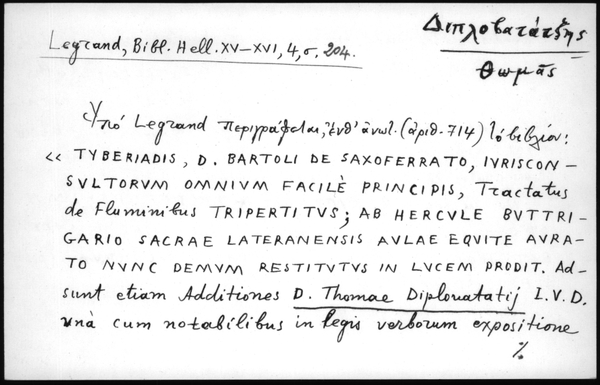 Διπλοβατάτζης
Θωμᾶς
Legrand, Bibl. Hell. XV–XVI, 4, σ. 204.
Ὑπό Legrand περιγράφεται, ἔνθ' ἀνωτ. (ἀριθ. 714) τό βιβλίον:
« TYBERIADIS, D. BARTOLI DE SAXOFERRATO, IVRISCON-
SVLTORVM OMNIVM FACILÈ PRINCIPIS, Tractatus
de Fluminibus TRIPERTITVS; AB HERCVLE BVTTRI-
GARIO SACRAE LATERANENSIS AVLAE EQVITE AVRA-
TO NVNC DEMVM RESTITVTVS IN LVCEM PRODIT. Ad-
sunt etiam Additiones D. Thomae Diplouatatij I.V.D.
vnà cum notabilibus in legis verborum expositione
%